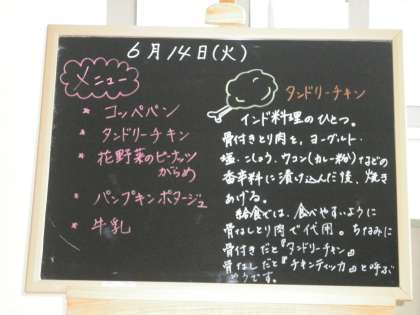 6月14日(火)
メニュー
* コッペパン
* タンドリーチキン
* 花野菜のピーナッツ
がらめ
* パンプキンポタージュ
* 牛乳
タンドリーチキン
インド料理のひとつ。
骨付きとり肉を、ヨーグルト・
塩・こしょう、ウコン(カレー粉)などの
香辛料に漬け込んだ後、焼き
あげる。
給食では、食べやすいように
骨なしとり肉で代用。ちなみに
骨付きだと『タンドリーチキン』
骨なしだと『チキンティッカ』と呼ぶ
そうです。